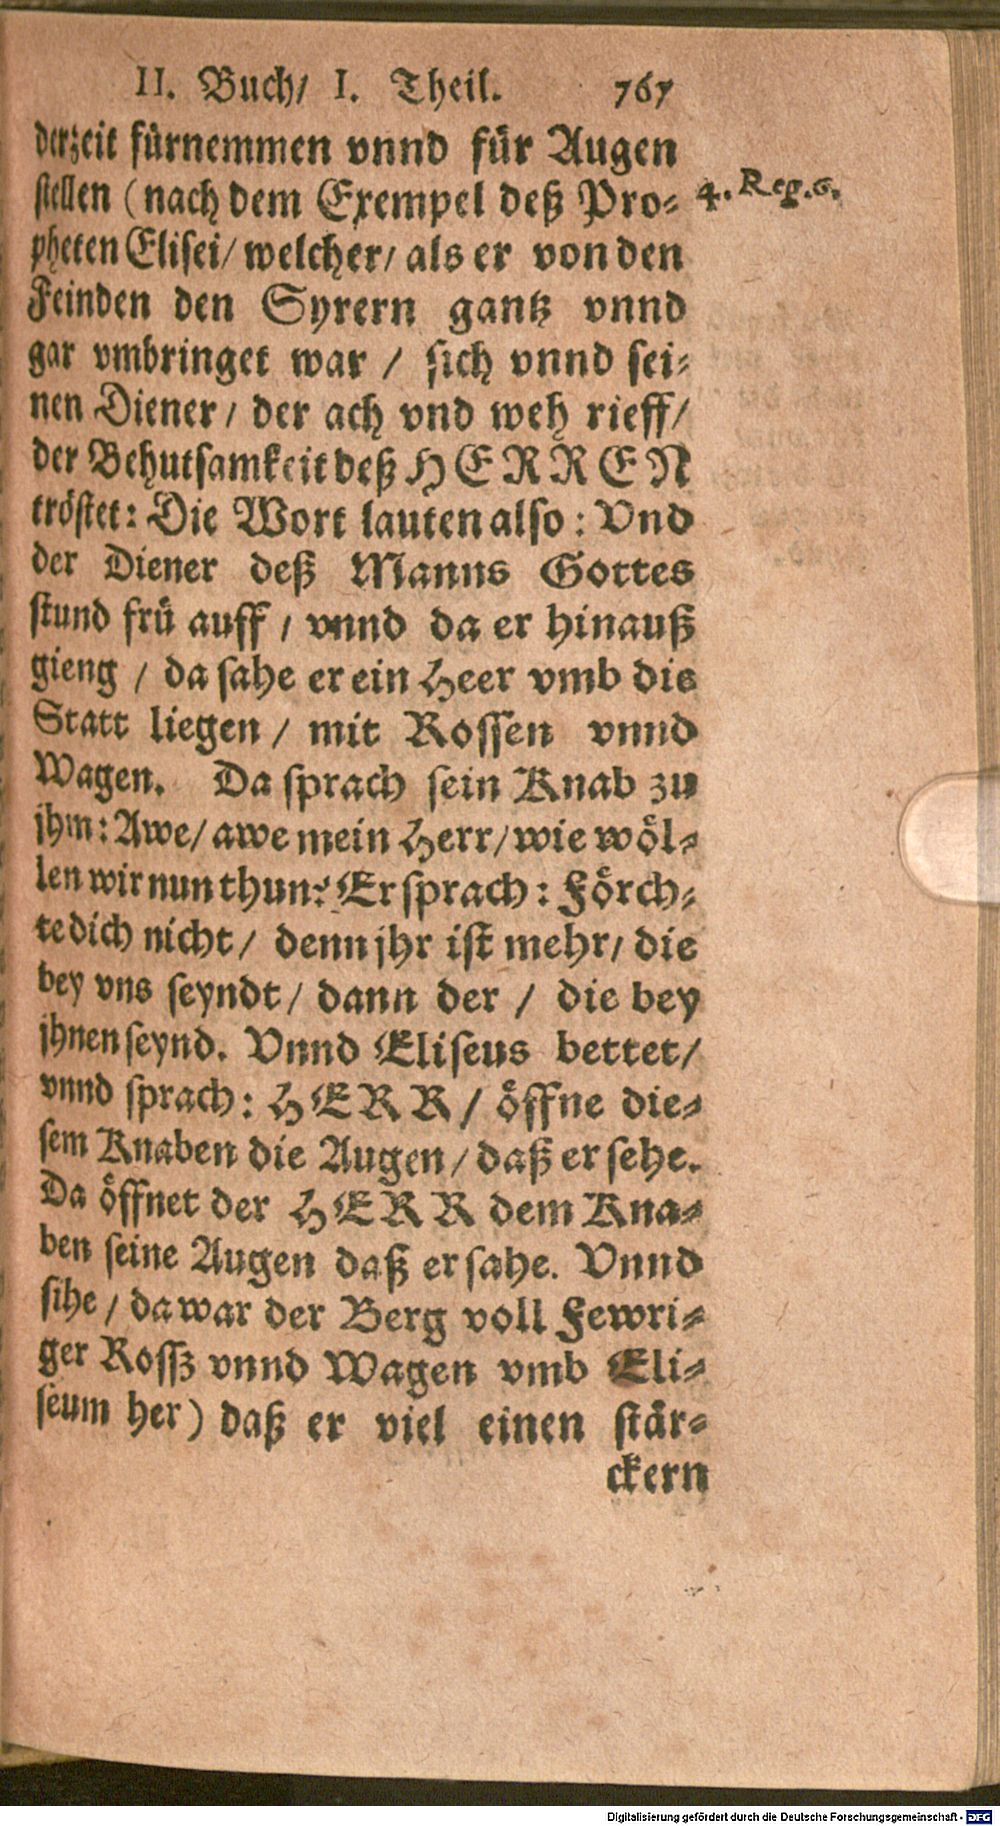 II. Buch/ I. Theil. 767
derzeit fürnemmen vnnd für Augen
stellen (nach dem Exempel deß Pro-
4. Reg. 6.
pheten Elisei/ welcher/ als er von den
Feinden den Syrern gantz vnnd
gar vmbringet war / sich vnnd sei-
nen Diener / der ach vnd weh rieff/
der Behutsamkeit deß HERREN
tröstet: Die Wort lauten also: Vnd
der Diener deß Manns Gottes
stund frü auff / vnnd da er hinauß
gieng / da sahe er ein Heer vmb die
Statt liegen / mit Rossen vnnd
Wagen. Da sprach sein Knab zu
jhm: Awe/ awe mein Herr/ wie wöl-
len wir nun thun? Er sprach: Förch-
te dich nicht/ denn jhr ist mehr/ die
bey vns seyndt / dann der / die bey
jhnen seynd. Vnnd Eliseus bettet/
vnnd sprach: HERR / öffne die-
sem Knaben die Augen / daß er sehe.
Da öffnet der HERR dem Kna-
ben seine Augen daß er sahe. Vnnd
sihe / da war der Berg voll Fewri-
ger Rossz vnnd Wagen vmb Eli-
seum her) daß er viel einen stär-
ckern
Digitalisierung gefördert durch die Deutsche Forschungsgemeinschaft - DFG